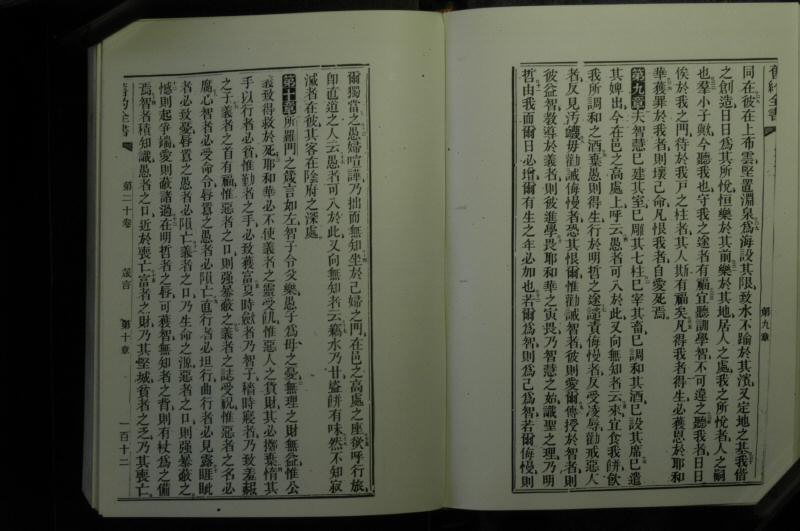 舊約全書
第九章
同在彼在上布雲堅置淵泉爲海設其限致水不踰於其濱又定地之基我偕
之創造日日爲其所悅恒樂於其前樂於其地居人之處我之所悅者人之嗣
也羣小子歟今聽我也守我之途者有福宜聽訓學智不可違之聽我者日日
俟於我之門待於我戶之柱者其人斯有福矣凡得我者得生必獲恩於耶和
華獲罪於我者則壞己命凡恨我者自愛死焉
第九章夫智慧已建其室已雕其七柱已宰其畜已調和其酒已設其席已遣
其婢出今在邑之高處上呼云愚者可入於此又向無知者云來宜食我餅飲
我所調和之酒棄愚則得生行於明哲之途譴責侮慢者反受凌辱勸戒惡人
者反見汚衊毋勸誡侮慢者恐其恨爾惟勸誡智者彼則愛爾傳授於智者則
彼益智敎導於義者則彼進學畏耶和華之寅畏乃智慧之始識聖之理乃明
哲由我而爾日必增爾有生之年必加也若爾爲智則爲己爲智若爾侮慢則
爾獨當之愚婦喧譁乃拙而無知坐於己婦之門在邑之高處之座欲呼行旅
卽直道之人云愚者可入於此又向無知者云竊水乃甘盜餅有味然不知寂
滅者在彼其客在陰府之深處
第十章所羅門之箴言如左智子令父樂愚子爲母之憂無理之財無益惟公
義致得救於死耶和華必不使義者之靈受飢惟惡人之貨財其必擲棄惰其
手以行者必貧惟勤者之手必致獲富夏時斂者乃智子穡時寢者乃致羞赧
之子義者之首有福惟惡者之口則強暴蔽之義者之誌受祝惟惡者之名必
腐心智者必受命令唇置之愚者必隕亡直行者必坦行曲行者必見露睚眦
者必致憂唇置之愚者必隕亡義者之口乃生命之源惡者之口則強暴蔽之
憾則起爭端愛則蔽諸過在明哲者之唇可獲智無知者之背則有杖爲之備
焉智者積知識愚者之口近於喪亡富者之財乃其堅城貧者之乏乃其喪亡
舊約全書
第二十卷
箴言
第十章
一百十二